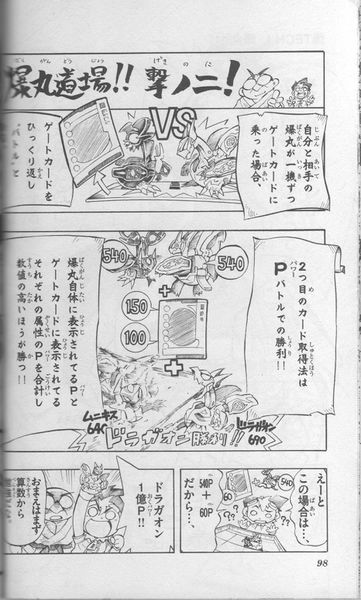 爆丸道場!! 撃ノ二!
自分と相手の
爆丸が一機ずつ
ゲートカードに
乗った場合、
VS
ゲートカードを
ひっくり返し
バトル
2つ目のカード取得法は
Pバトルでの勝利!!
540
540
+
150
100
+
爆丸自体に表示されてるPと
ゲートカードに表示されてる
それぞれの属性のPを合計し
数値の高いほうが勝つ!!
ドラガオン
690
ムーキス
640
ドラガオン勝利!!
えーと
この場合は…、
540
60
??
??
540P
+
60P
だから…、
ドラガオン
1億P!!
おまえはまず
算数から
98